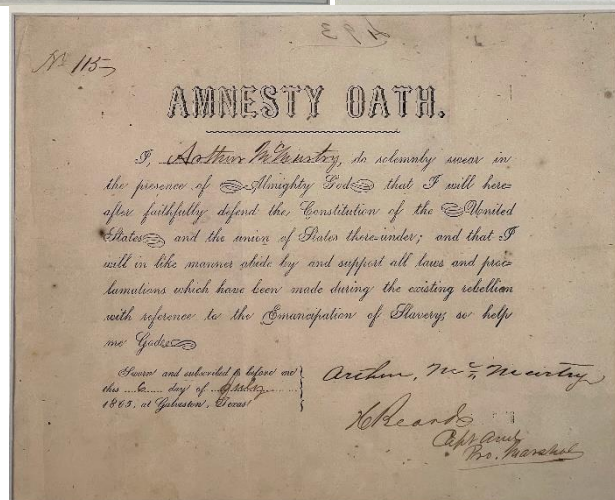 No 115
AMNESTY OATH.
I, Arthur McMurtry, do solemnly swear in
the presence of Almighty God that I will here-
after faithfully defend the Constitution of the United
States and the union of States there-under; and that I
will in like manner abide by and support all laws and proc-
lamations which have been made during the existing rebellion
with reference to the Emancipation of Slavery; so help
me God.
Sworn and subscribed to before me
this 6 day of July
1865, at Galveston, Texas
Arthur, Mc Murtry
Capt and
Pro. Marshal